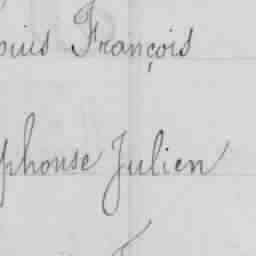 ouis François
phonse Julien